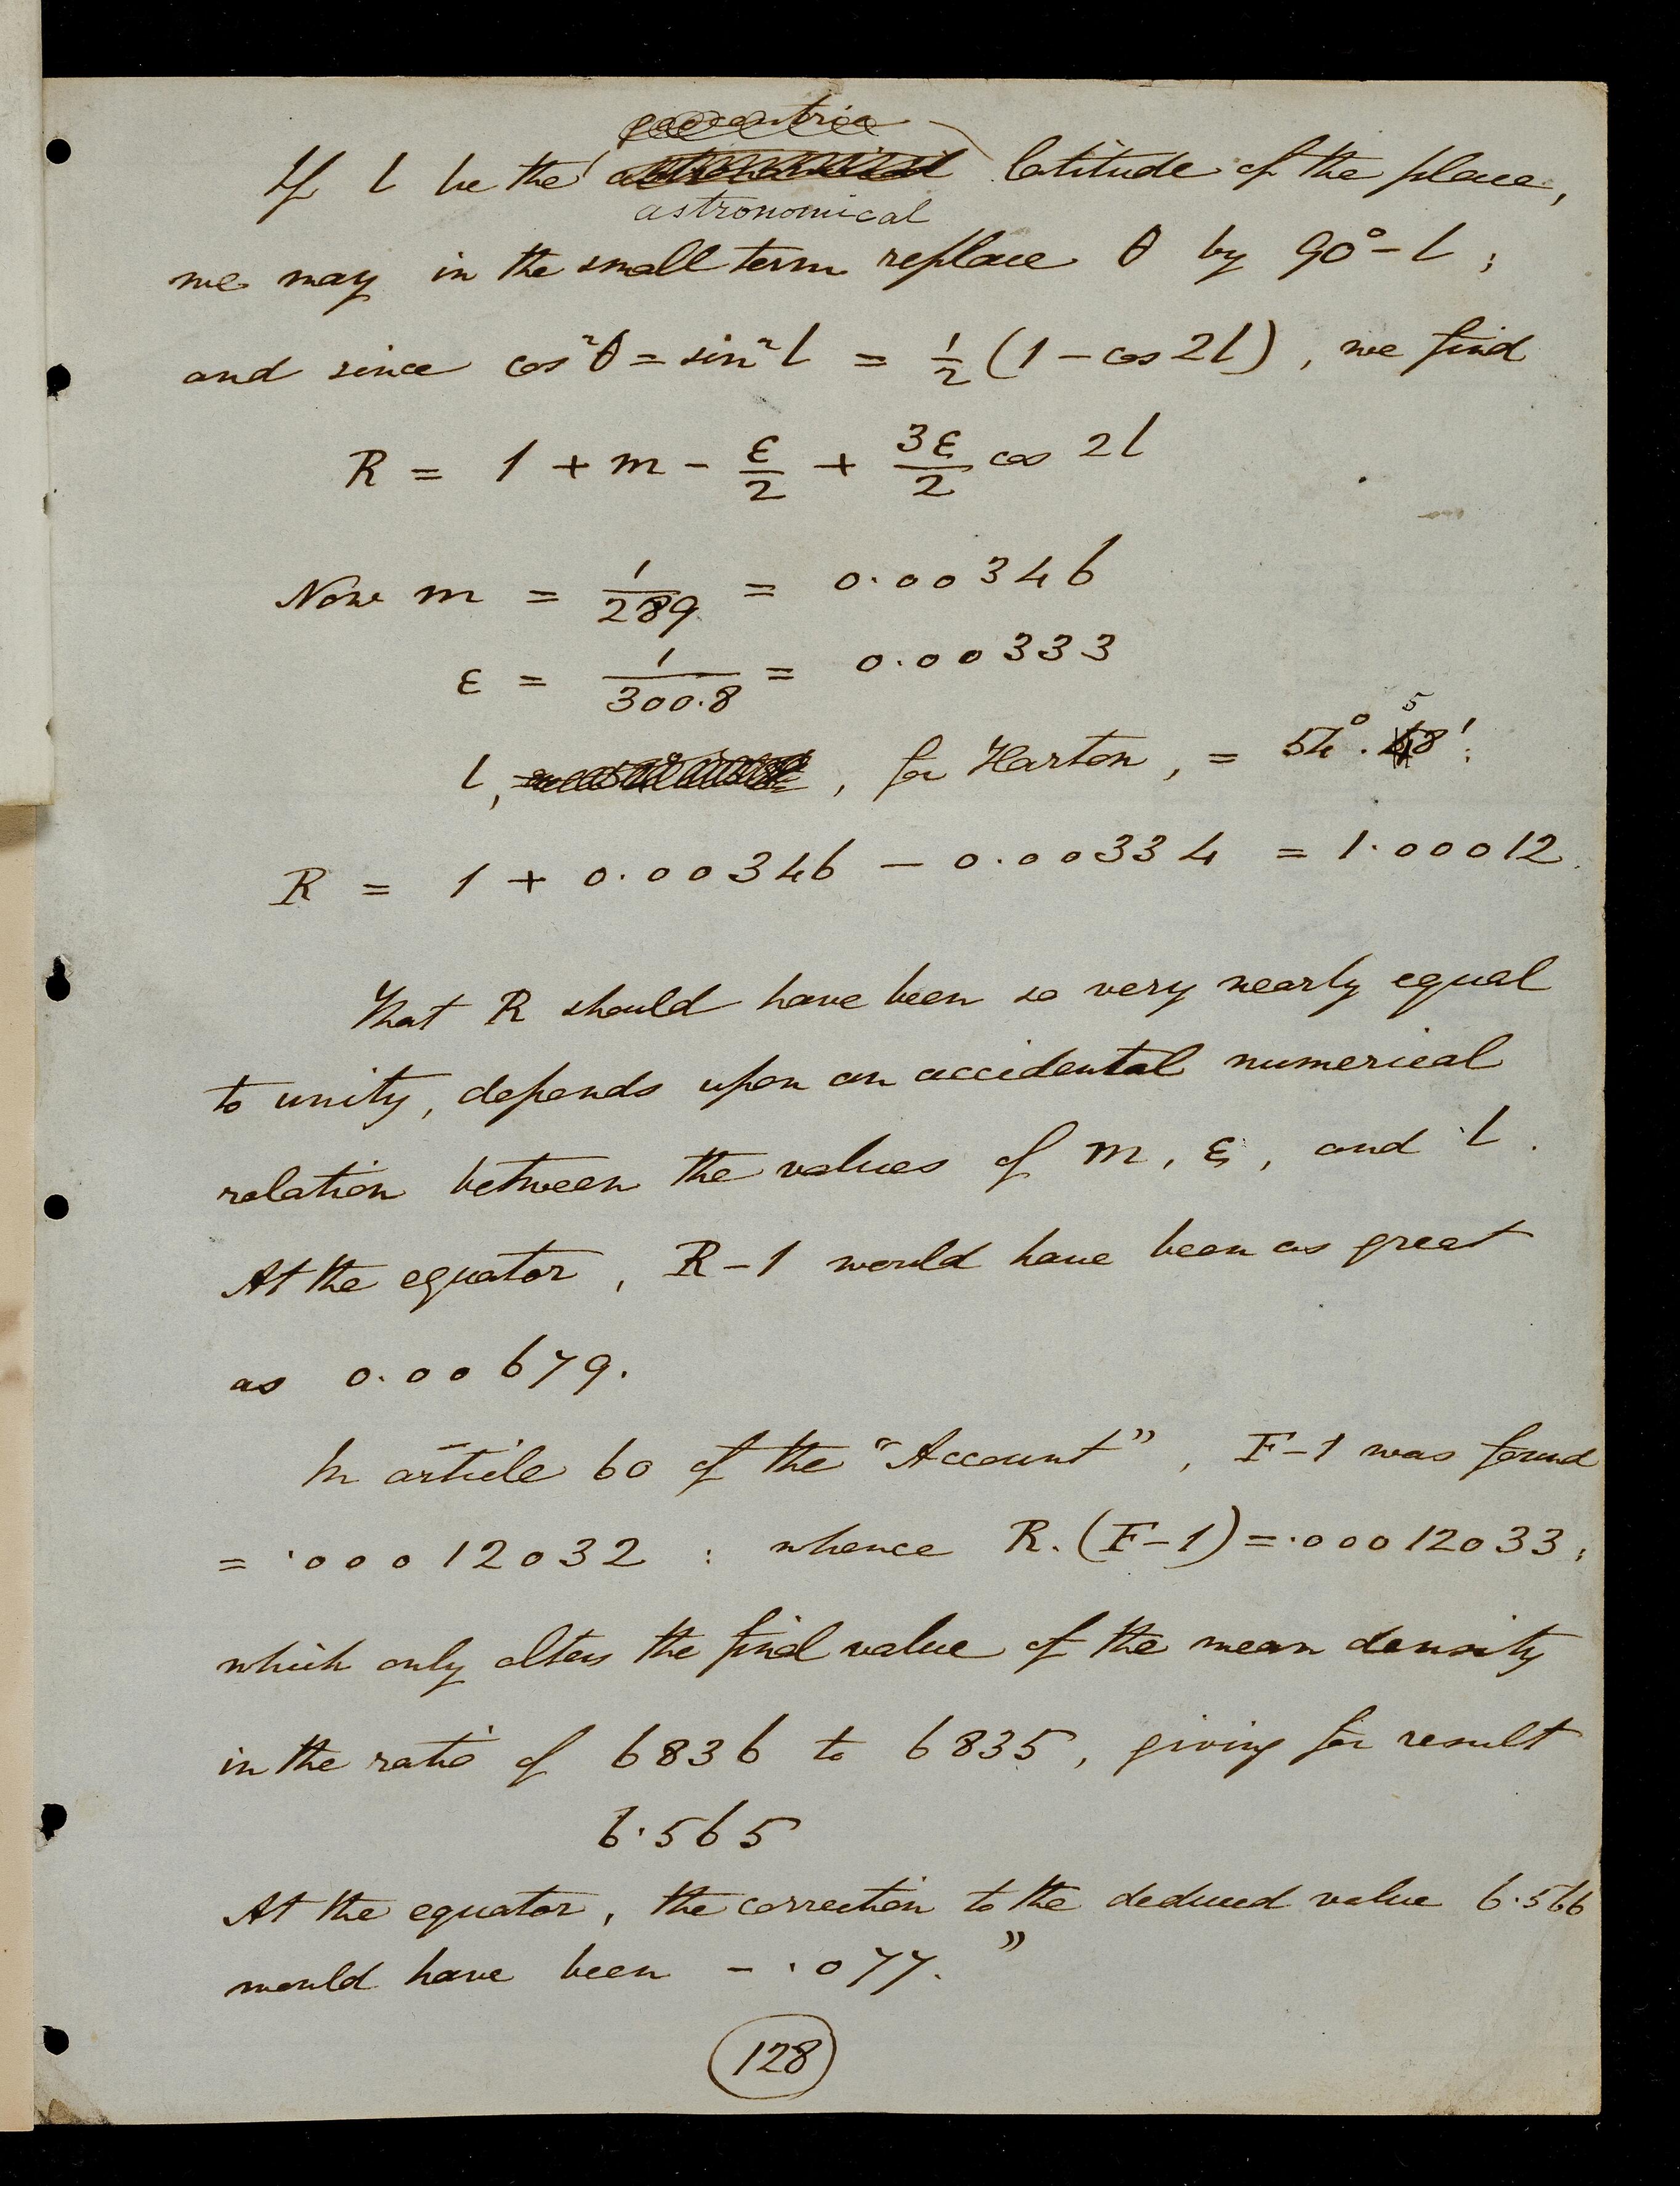 geocentric
If l be the astronomical latitude of the place,
astronomical
we may in the small term replace θ by 90° - l ;
and since cos²θ = sin²l = 1/2 (1 - cos 2l) , we find
R = 1 + m - ε/2 + 3ε/2 cos 2l
Now m = 1/289 = 0.00346
ε = 1/300.8 = 0.00333
5
l, , for Harton , = 54°. 48' :
R = 1 + 0.00346 - 0.00334 = 1.00012.
That R should have been so very nearly equal
to unity, depends upon an accidental numerical
relation between the values of m, ε, and l .
At the equator , R-1 would have been as great
as 0.00679.
In article 60 of the "Account" , F-1 was found
= .00012032 : whence R.(F-1) = .00012033 ;
which only alters the final value of the mean density
in the ratio of 6836 to 6835, giving for result
6.565
At the equator , the correction to the deduced value 6.566
would have been - .077. "
128